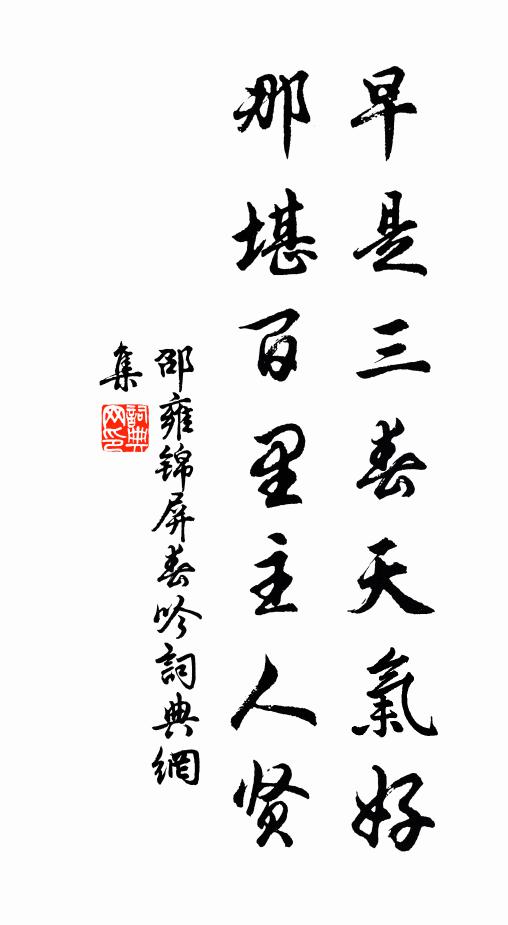 早是三春天氣好
那堪百里主人贤
邵雍锦屏春吟詞典網
集
詞典
网印